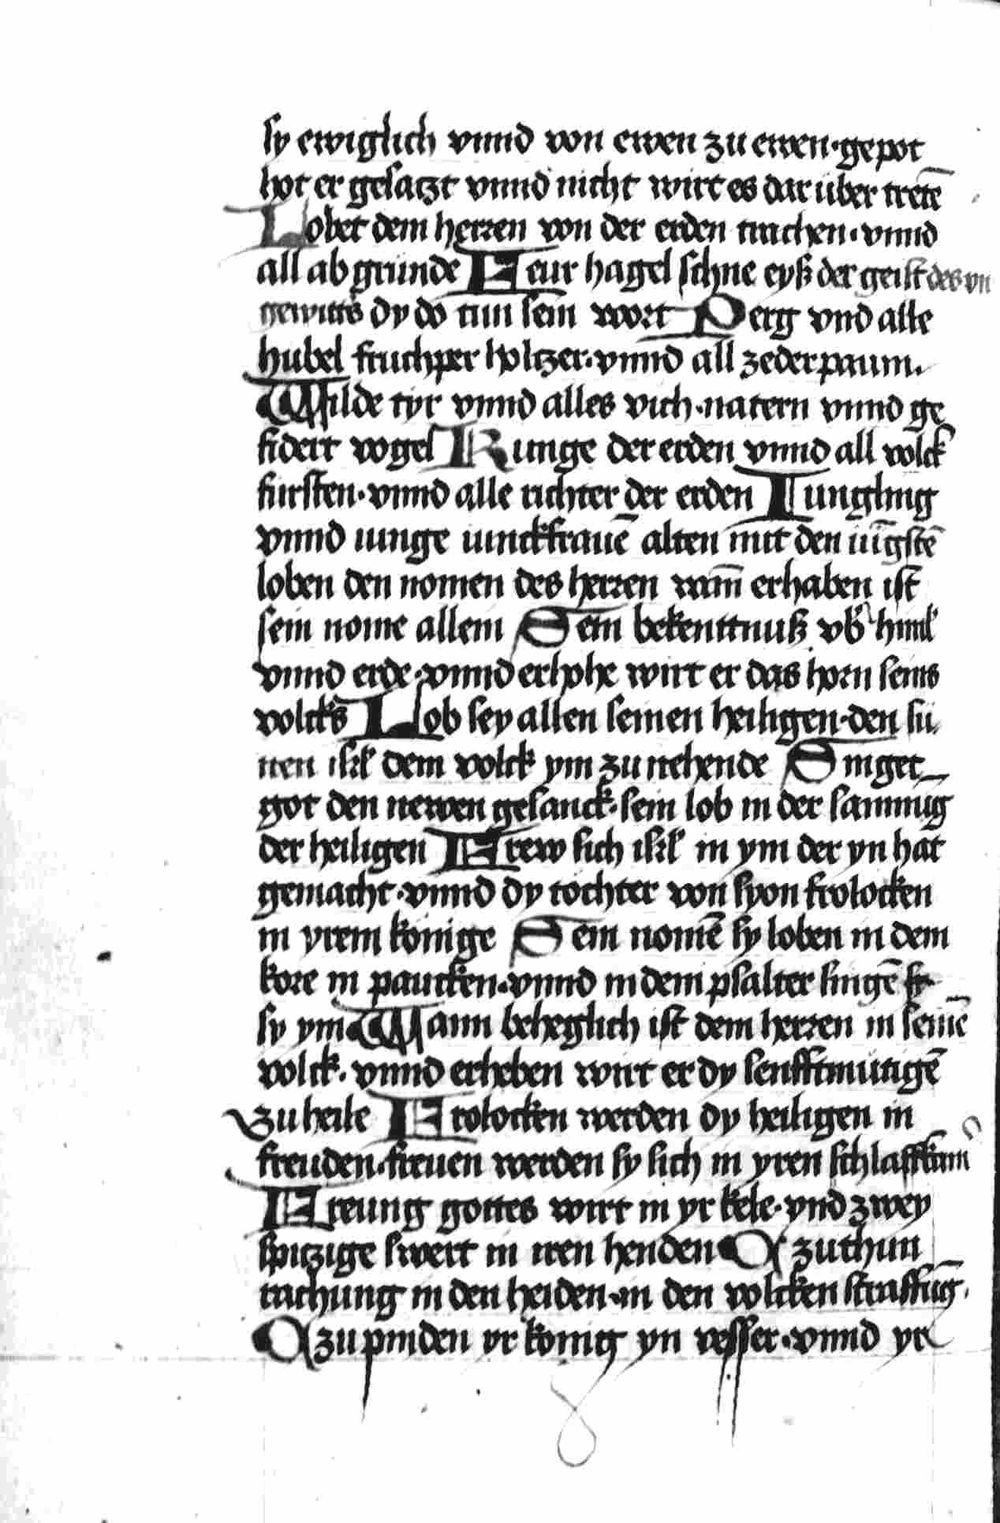 sy ewiglich vnnd von ewen zu ewen·gepot
hot er gesatzt vnnd nicht wirt es dar über tretē
Lobet dem herren von der erden trachen·vnnd
all ab grunde Feur hagel schne eyß der geist des vn
gewitt's dy do tun sein wort Perg vnd alle
hubel fruchper holtzer·vnnd all zeder paum.
Wilde tyr vnnd alles vich·natern vnnd ge
fidert vogel Kunge der erden vnnd all volck
fursten·vnnd alle richter der erden Iungling
vnnd iunge iunckfrauē alten mit den iūgstē
loben den nomen des herren wañ erhaben ist
sein nome allein Sein bekenttnuß vb' himl'
vnnd erde·vnnd erhohe wirt er das horn seins
volcks Lob sey allen seinen heiligen·den su
nen isrl' dem volck ym zu nehende Singet
got den newen gesanck·sein lob in der samnūg
der heiligen Frew sich isrl' in ym der yn hat
gemacht·vnnd dy tochter von syon frolocken
in yrem könige Sein nomē sy loben in dem
kore in paucken·vnnd in dem psalter singē
sy ym Wann beheglich ist dem herren in seinē
volck·vnnd erheben wirt er dy senfftmutigē
zu heile Frolocken werden dy heiligen in
freuden·freuen werden sy sich in yren schlaffkām
Freung gottes wirt in yr kele·vnd zwey
spitzige swert in iren henden Czu thun
rachung in den heiden·in den volcken straffūg.
Czu pinden yr konig yn vesser·vnnd yr